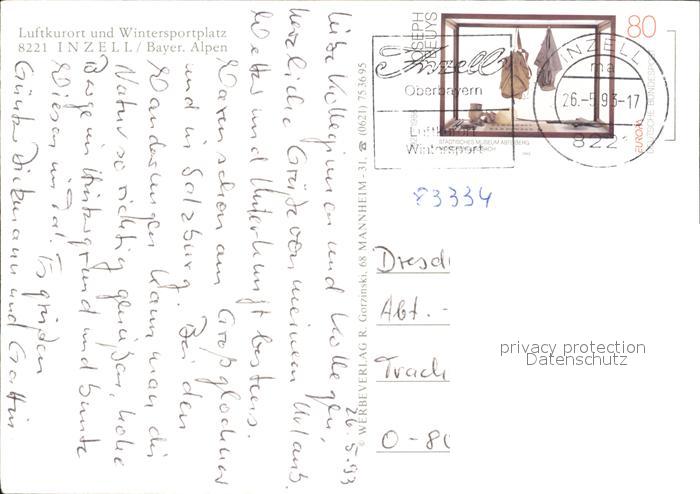 Luftkurort und Wintersportplatz
8221 INZELL / Bayer. Alpen
26.5.93
Liebe Kolleginnen und Kollegen,
herzliche Grüße von meinem Urlaub.
Wetter und Unterkunft bestens.
Waren schon am Großglockner
und in Salzburg. Bei den
Wanderungen kann man die
Natur so richtig genießen, hohe
Berge im Hintergrund und bunte
Wiesen im Tal. Es grüßen
Günter Dickmann und Gattin.
© WERBEVERLAG R. Gorzinski, 68 MANNHEIM-31, ☎ (0621) 753695
JOSEPH
BEUYS
80
DEUTSCHE BUNDESPOST
EUROPA
STÄDTISCHES MUSEUM ABTEIBERG
Inzell
Oberbayern
Luftkurort
Wintersport
INZELL
ma
26.-5.93-17
8221
83334
Dresd
Abt. -
Trach
O-80
privacy protection
Datenschutz